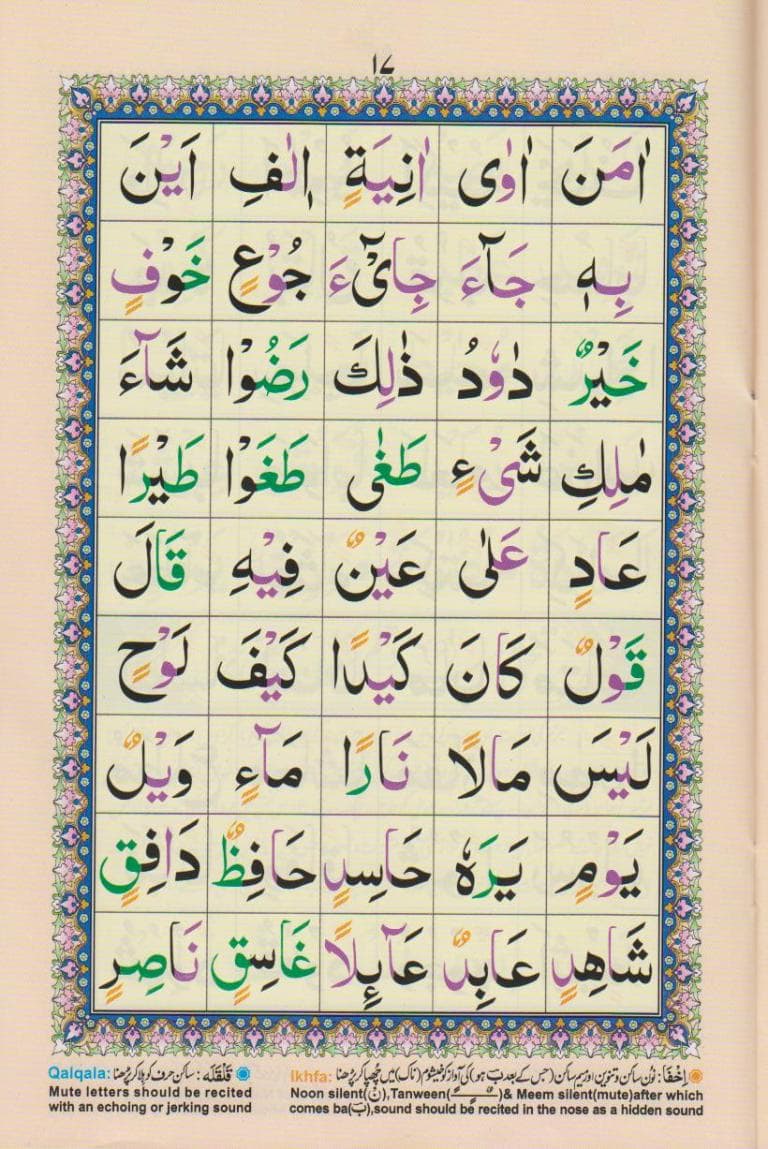 ١٧
اٰمَنَ اٰوٰی اٰنِیَةٍ اِلٰفِ اَیْنَ
بِهٖ جَآءَ جِایْٓءَ جُوْعٍ خَوْفٍ
خَیْرٌ دٰوٗدُ ذٰلِكَ رَضُوْا شَآءَ
مٰلِكِ شَیْءٍ طَغٰی طَغَوْا طَیْرًا
عَادٍ عَلٰی عَیْنٌ فِیْهِ قَالَ
قَوْلٌ كَانَ كَیْدًا كَیْفَ لَوْحٍ
لَیْسَ مَالًا نَارًا مَآءٍ وَیْلٌ
یَوْمٍ یَرَهٗ حَاسِدٍ حَافِظٌ دَافِقٍ
شَاهِدٍ عَابِدٌ عَآئِلًا غَاسِقٍ نَاصِرٍ
اِخْفَا: نون ساکن و تنوین اور میم ساکن (جس کے بعد ب ہو) کی آواز کو خیشوم (ناک) میں چھپا کر پڑھنا Ikhfa:
Noon silent(نْ),Tanween(ـًـــٍـــٌـ)& Meem silent(mute)after which
comes ba(بَ),sound should be recited in the nose as a hidden sound
قَلْقَلَه: ساکن حرف کو ہلا کر پڑھنا Qalqala:
Mute letters should be recited
with an echoing or jerking sound